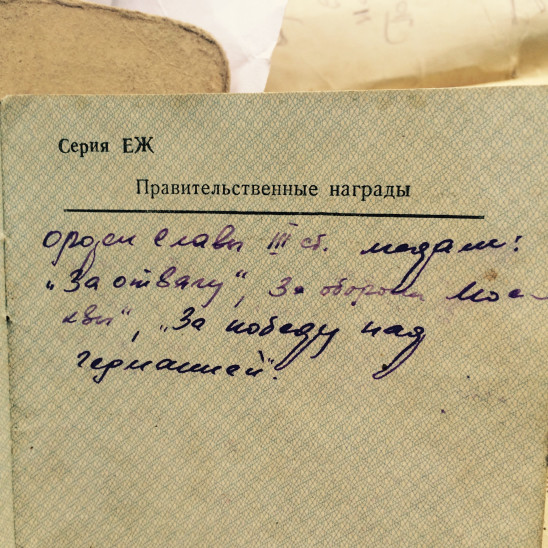 Серия ЕЖ
Правительственные награды
орден Славы III ст. медали:
"За отвагу", За оборону Мос-
квы", "За победу над
Германией".